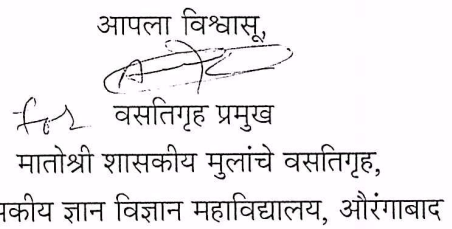 आपला विश्वासू,
for वसतिगृह प्रमुख
मातोश्री शासकीय मुलांचे वसतिगृह,
ज्ञान विज्ञान महाविद्यालय, औरंगाबाद